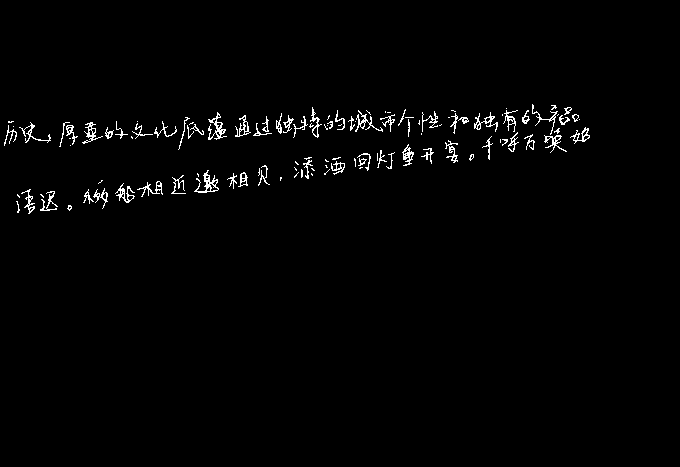 历史,厚重的文化底蕴通过独特的城市个性和独有的产品
语迟。移船相近邀相见,添酒回灯重开宴。千呼万唤始